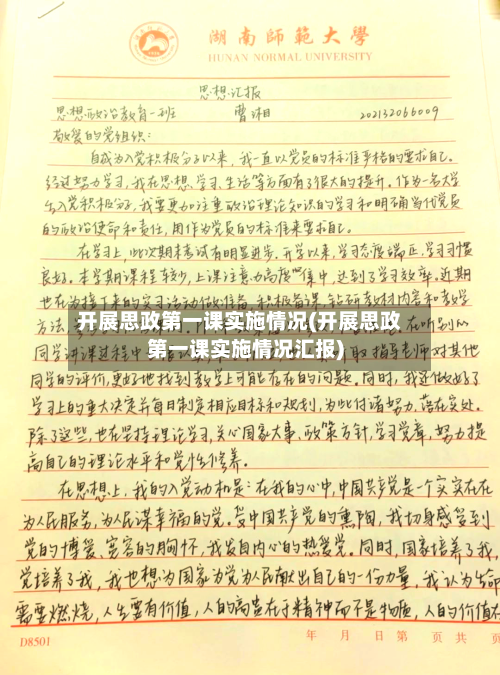 湖南師範大學
HUNAN NORMAL UNIVERSITY
思想汇报
思想政治教育一班 曹湘 202132066009
敬爱的党组织：
自成为入党积极分子以来，我一直以党员的标准严格的要求自己。
经过努力学习，我在思想、学习、生活等方面有了很大的提升。作为一名大学
生入党积极分子，我要更加注重政治理论知识的学习和明确当代党员
的政治使命和责任，用作为党员的标准来要求自己。
在学习上，此次期末考试有明显进步。开学以来，学习态度端正，学习习惯
良好。本学期课程较少，上课注意力高度集中，达到了学习效率。近期
也在为接下来的实习活动做准备，积极备课，钻研教材内容和教学
方法。
开展思政第一课实施情况(开展思政
第一课实施情况汇报)
在听别的
同学讲课过程中 取指导老师对其他
同学的评价，更好地找到教学上可能存在的问题。同时，我还做好了
学习上的重大决定并每日制定相应目标和规划，为此付诸努力，落在实处。
除了这些，也在坚持理论学习，关心国家大事、政策方针，学习党章，努力提
高自己的理论水平和党性修养。
在思想上，我的入党动机是：在我的心中，中国共产党是一个实实在在
为人民服务，为人民谋幸福的党。受中国共产党的熏陶，我切身感受到
党的博爱、宽容的胸怀，我发自内心的热爱党。同时，国家培养了我，
党培养了我，我也想为国家为党为人民献出自己的一份力量，我认为生命
需要燃烧，人生要有价值，人的高贵在于精神而不是物质，人的价值在
D8501 年 月 日第 页共 页